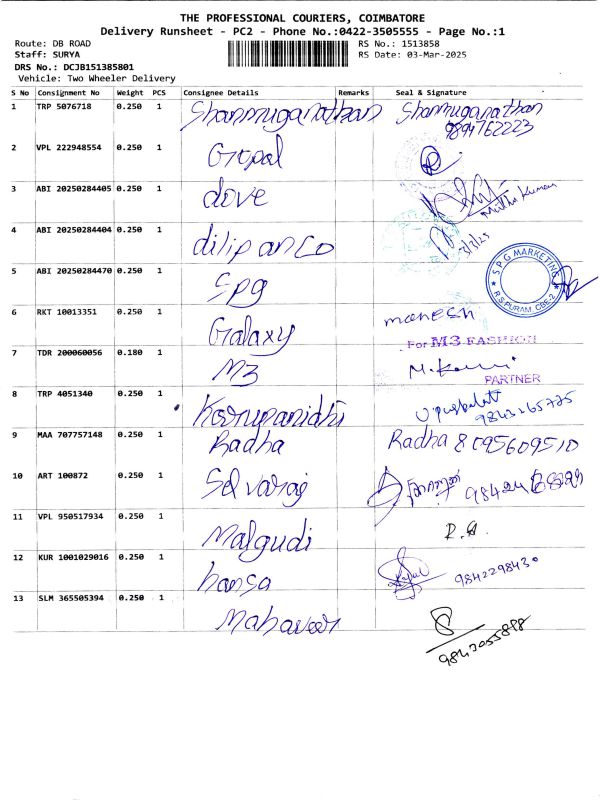 THE PROFESSIONAL COURIERS, COIMBATORE
Delivery Runsheet - PC2 - Phone No.:0422-3505555 - Page No.:1
Route: DB ROAD RS No.: 1513858
Staff: SURYA RS Date: 03-Mar-2025
DRS No.: DCJB151385801
Vehicle: Two Wheeler Delivery
S No Consignment No Weight PCS Consignee Details Remarks Seal & Signature
1 TRP 5076718 0.250 1 Shanmuganathan Shanmuganathan
9894762223
2 VPL 222948554 0.250 1 Gopal
3 ABI 20250284405 0.250 1 dove Muthu Kumar
4 ABI 20250284404 0.250 1 dilip an co 3/3/25
5 ABI 20250284470 0.250 1 Spg SPG MARKETING R S PURAM, CBE-2
6 RKT 10013351 0.250 1 Galaxy manesh
For M3 FASHION
7 TDR 200060056 0.180 1 M3
PARTNER
8 TRP 4051340 0.250 1 Karupanidhi
9 MAA 707757148 0.250 1 Radha Radha 8095609510
10 ART 100872 0.250 1 Selvaraj
11 VPL 950517934 0.250 1 Malgudi
12 KUR 1001029016 0.250 1 hansa 9842298430
13 SLM 365505394 0.250 1 Mahaveer